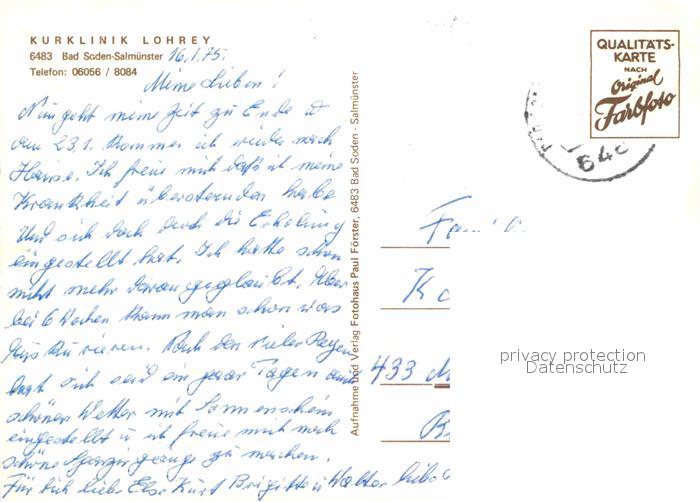 KURKLINIK LOHREY
6483 Bad Soden-Salmünster 16.1.75.
Telefon: 06056 / 8084
Meine Lieben!
Nun geht meine Zeit zu Ende u
am 23.1. komme ich wieder nach
Hause. Ich freue mich daß ich meine
Krankheit überstanden habe
und sich doch noch die Erholung
eingestellt hat. Ich hatte schon
nicht mehr daran geglaubt. Aber
bei 6 Wochen kann man schon was
auskurieren. Nach den vielen Regen
hat sich seid ein paar Tagen
schönes Wetter mit Sonnenschein
eingestellt u ich freue mich noch
schöne Spaziergänge zu machen.
Für Dich liebe Else Kurt Brigitte u Walter liebe
Aufnahme und Verlag Fotohaus Paul Förster, 6483 Bad Soden - Salmünster
QUALITÄTS-
KARTE
NACH
Original
Farbfoto
648
Fami
433 M
privacy protection
Datenschutz